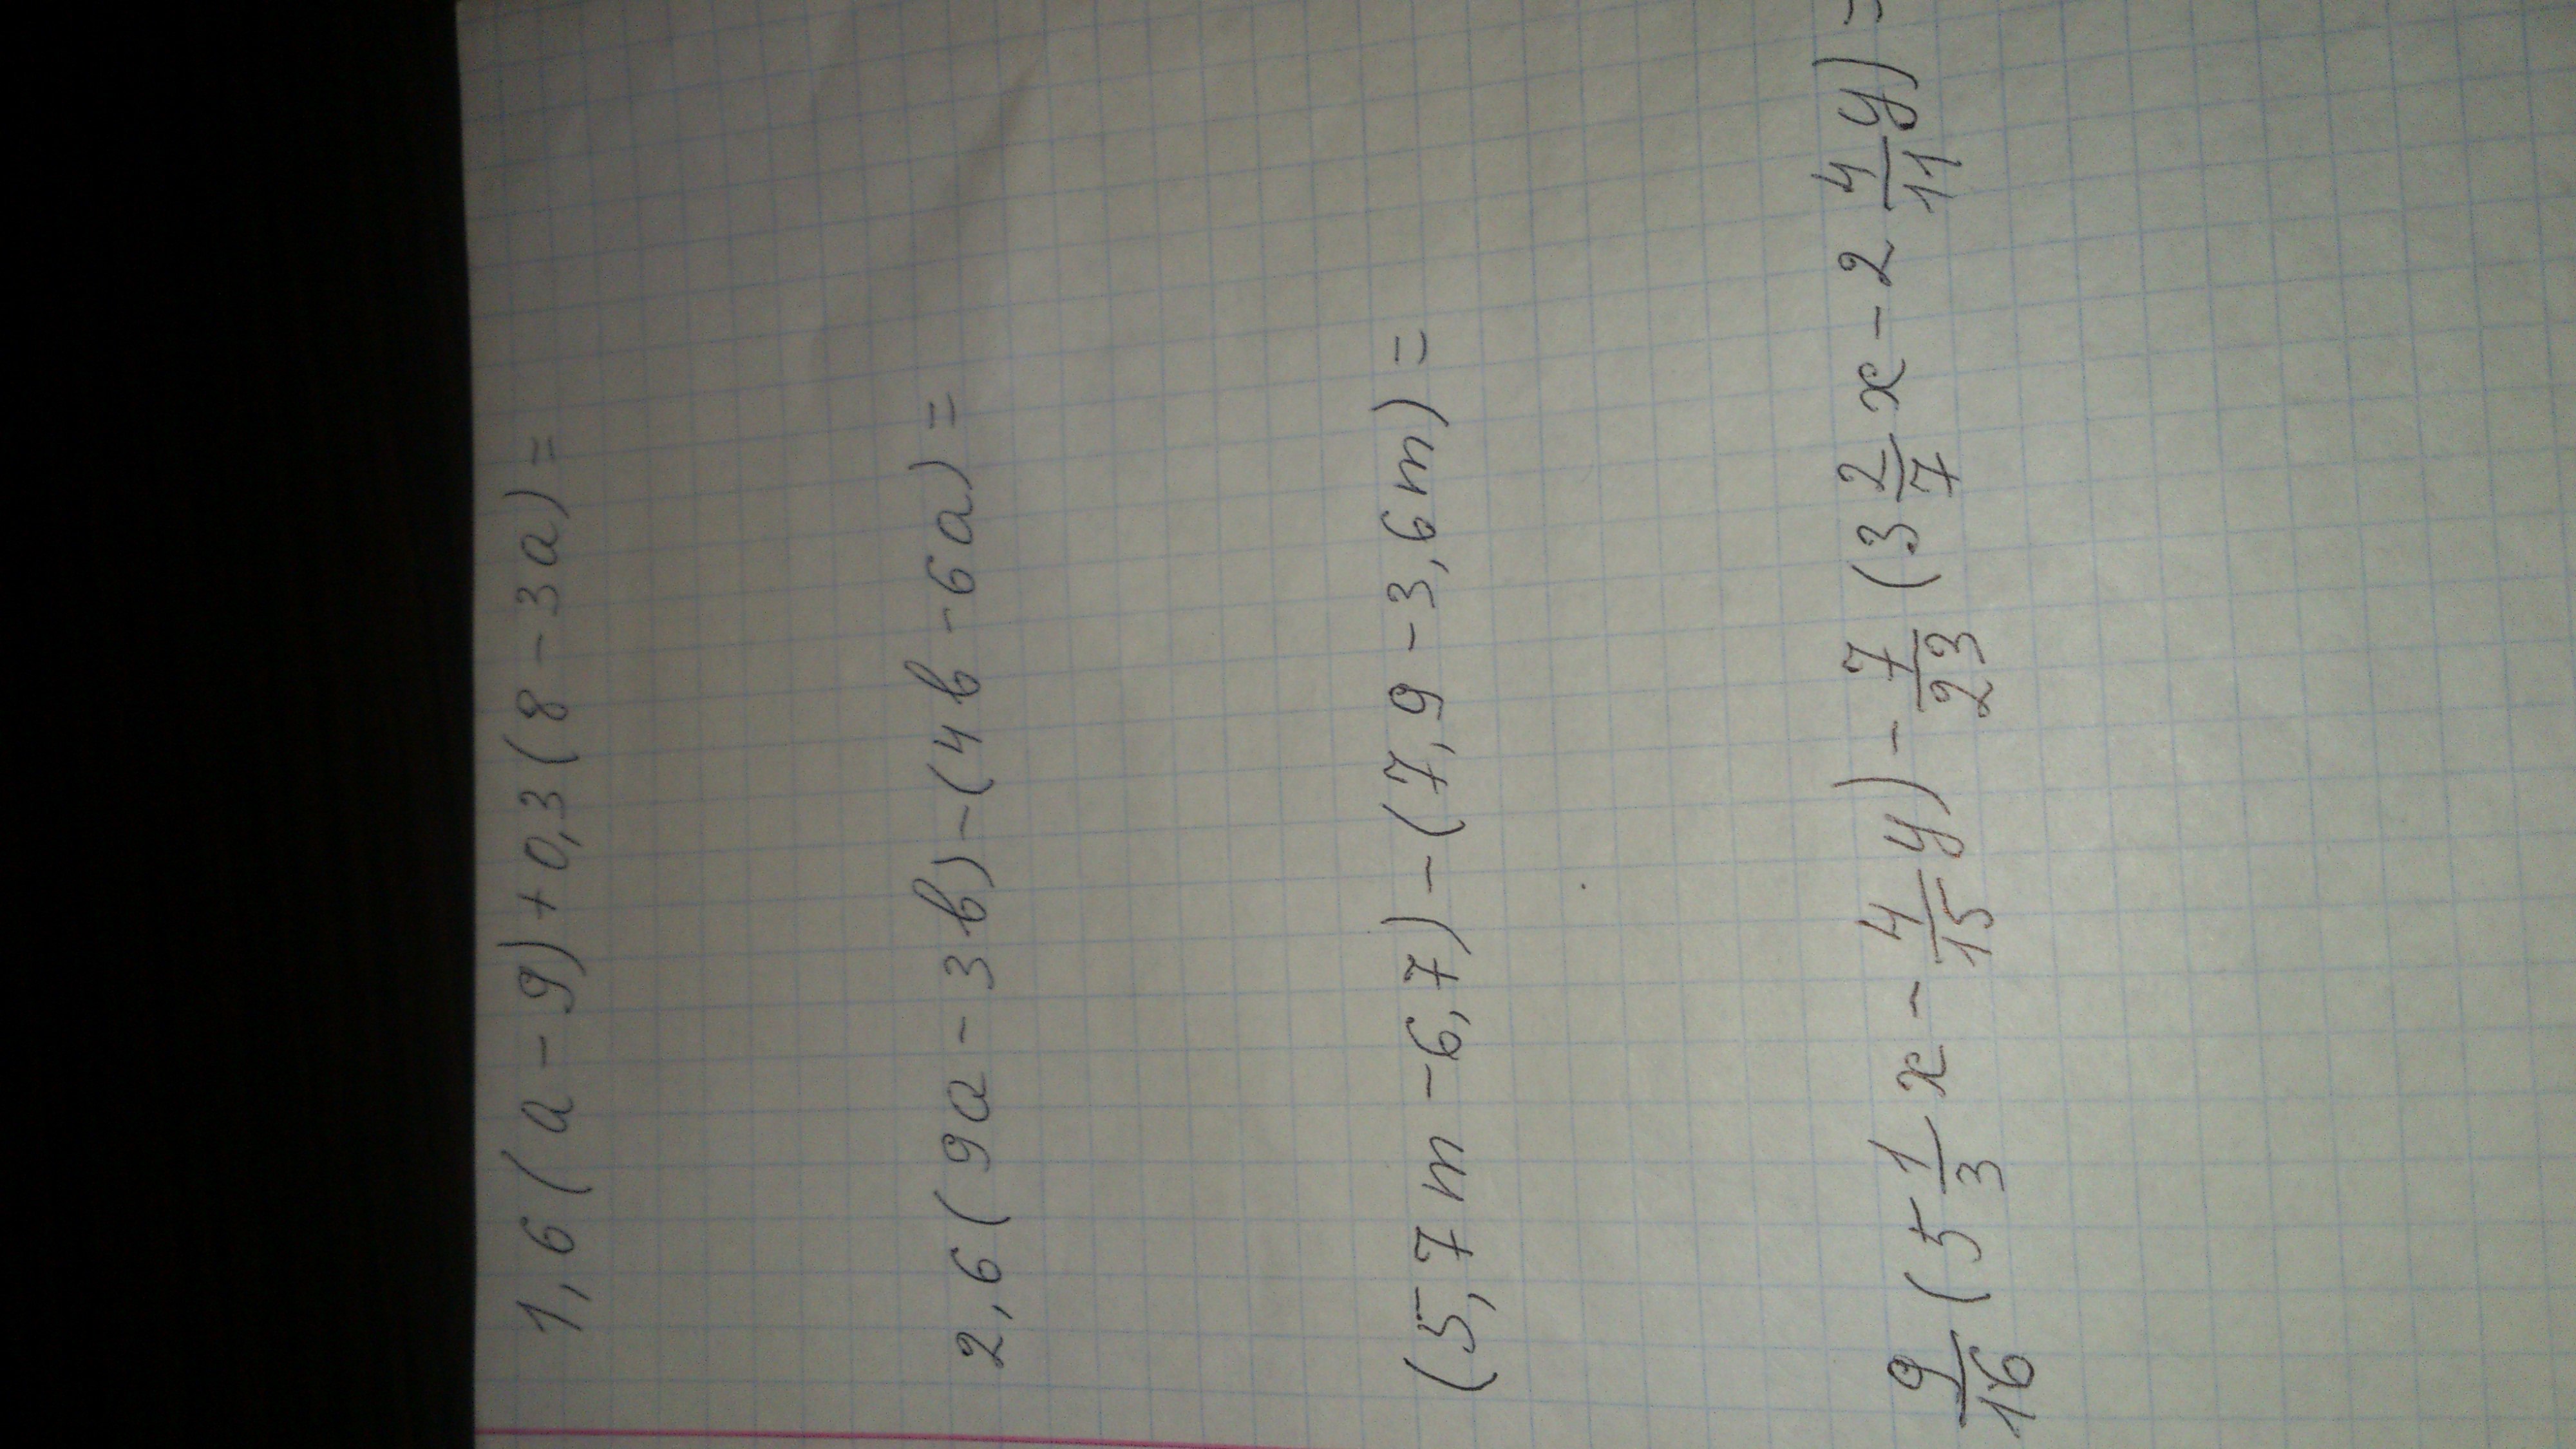 1,6(a-9)+0,3(8-3a)=
2,6(9a-3b)-(4b-6a)=
(5,7m-6,7)-(7,9-3,6m)=
9/16(5 1/3 x - 4/15 y) - 7/23(3 2/7 x - 2 4/11 y)=